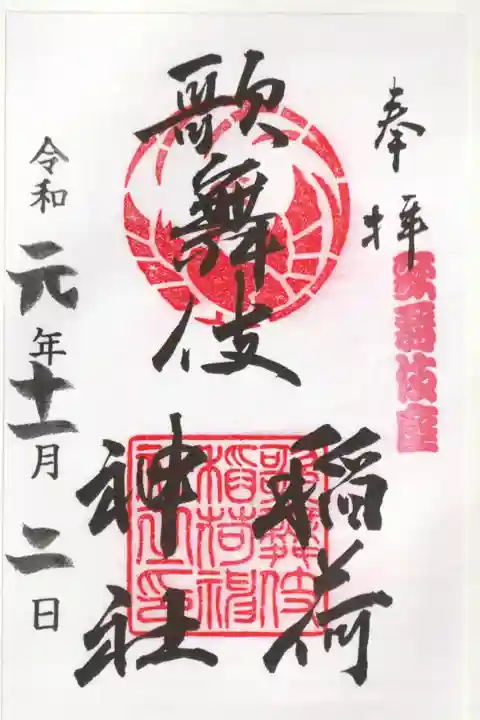 奉拝
歌舞伎座
歌舞伎
稲荷
神社
歌舞伎稲荷神社印
令和元年十一月二日